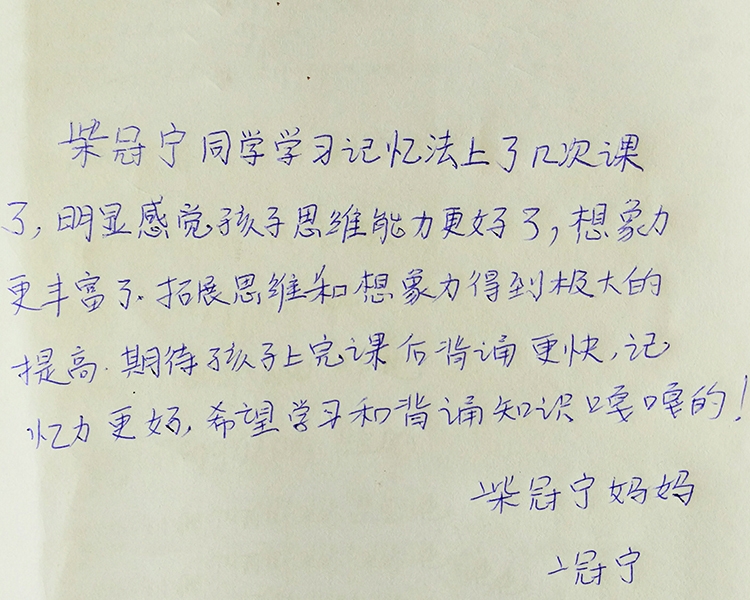 柴冠宁同学学习记忆法上了几次课
了,明显感觉孩子思维能力更好了,想象力
更丰富了.拓展思维和想象力得到极大的
提高.期待孩子上完课后背诵更快,记
忆力更好,希望学习和背诵知识嘎嘎的!
柴冠宁妈妈
冠宁